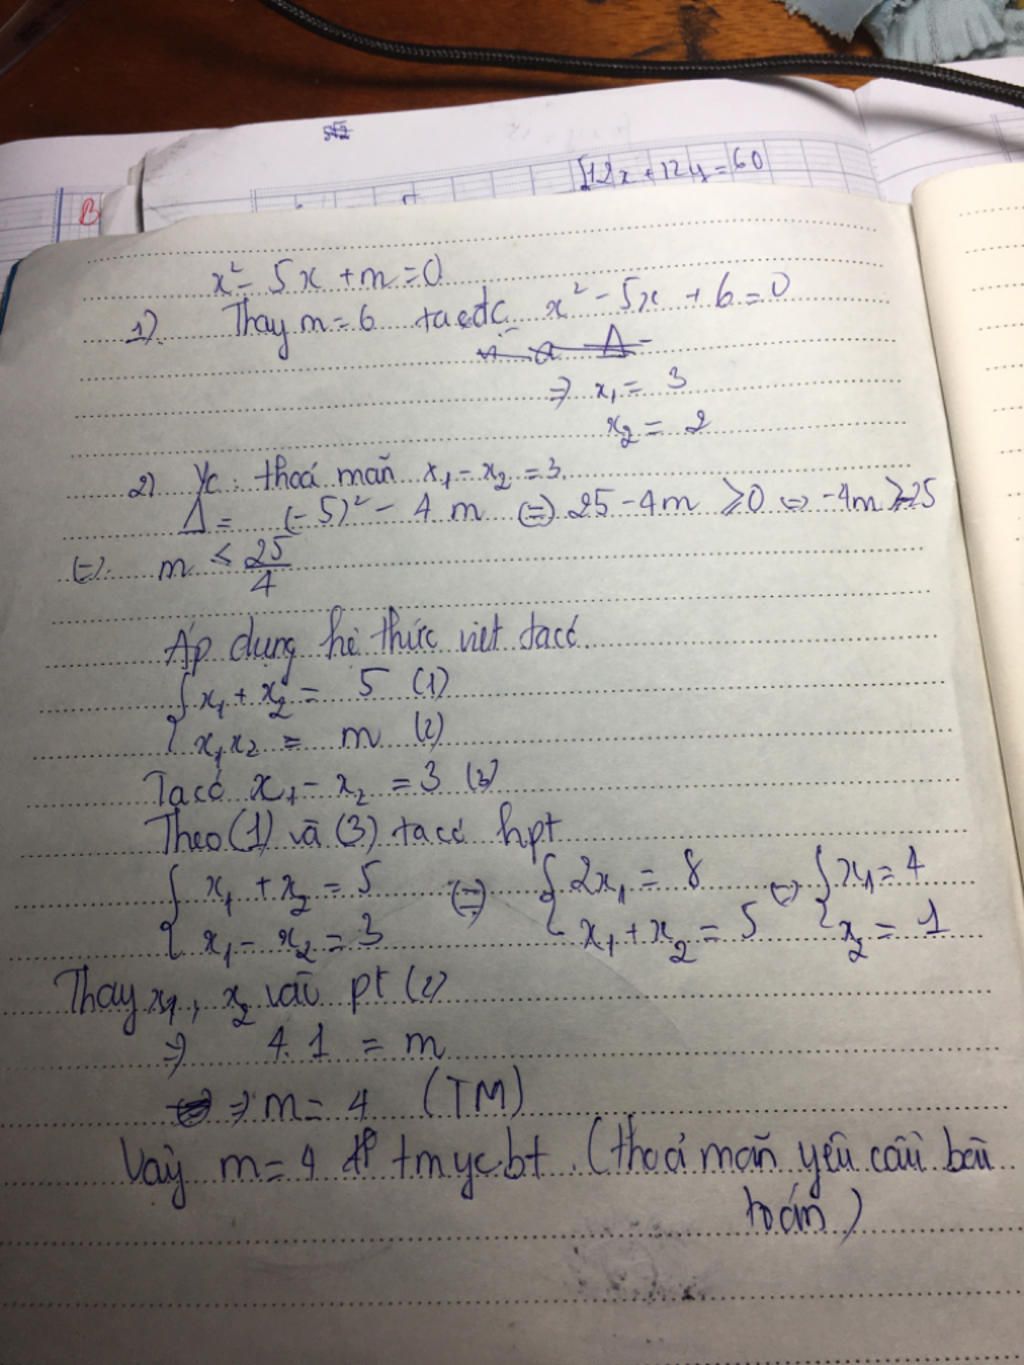 12x + 12y = 60
B
x² - 5x + m = 0
1). Thay m = 6 ta cđc x² - 5x + 6 = 0
⇒ x₁ = 3
x₂ = 2
2) Yc: thoả mãn x₁ - x₂ = 3.
Δ = (-5)² - 4 m (=) 25 - 4m ⩾ 0 ⇔ -4m ⩾ -25
(=). m ≤ 25/4
Áp dụng hệ thức viet ta có.
{ x₁ + x₂ = 5 (1)
{ x₁x₂ = m (2)
Ta có x₁ - x₂ = 3 (3)
Theo (1) và (3) ta có hpt
{ x₁ + x₂ = 5 (=) { 2x₁ = 8 ⇔ { x₁ = 4
{ x₁ - x₂ = 3 { x₁ + x₂ = 5 { x₂ = 1
Thay x₁, x₂ vào pt (2)
⇒ 4. 1 = m
⇒ m = 4 (TM)
Vậy m = 4 tmycbt. (thoả mãn yêu cầu bài
toán)